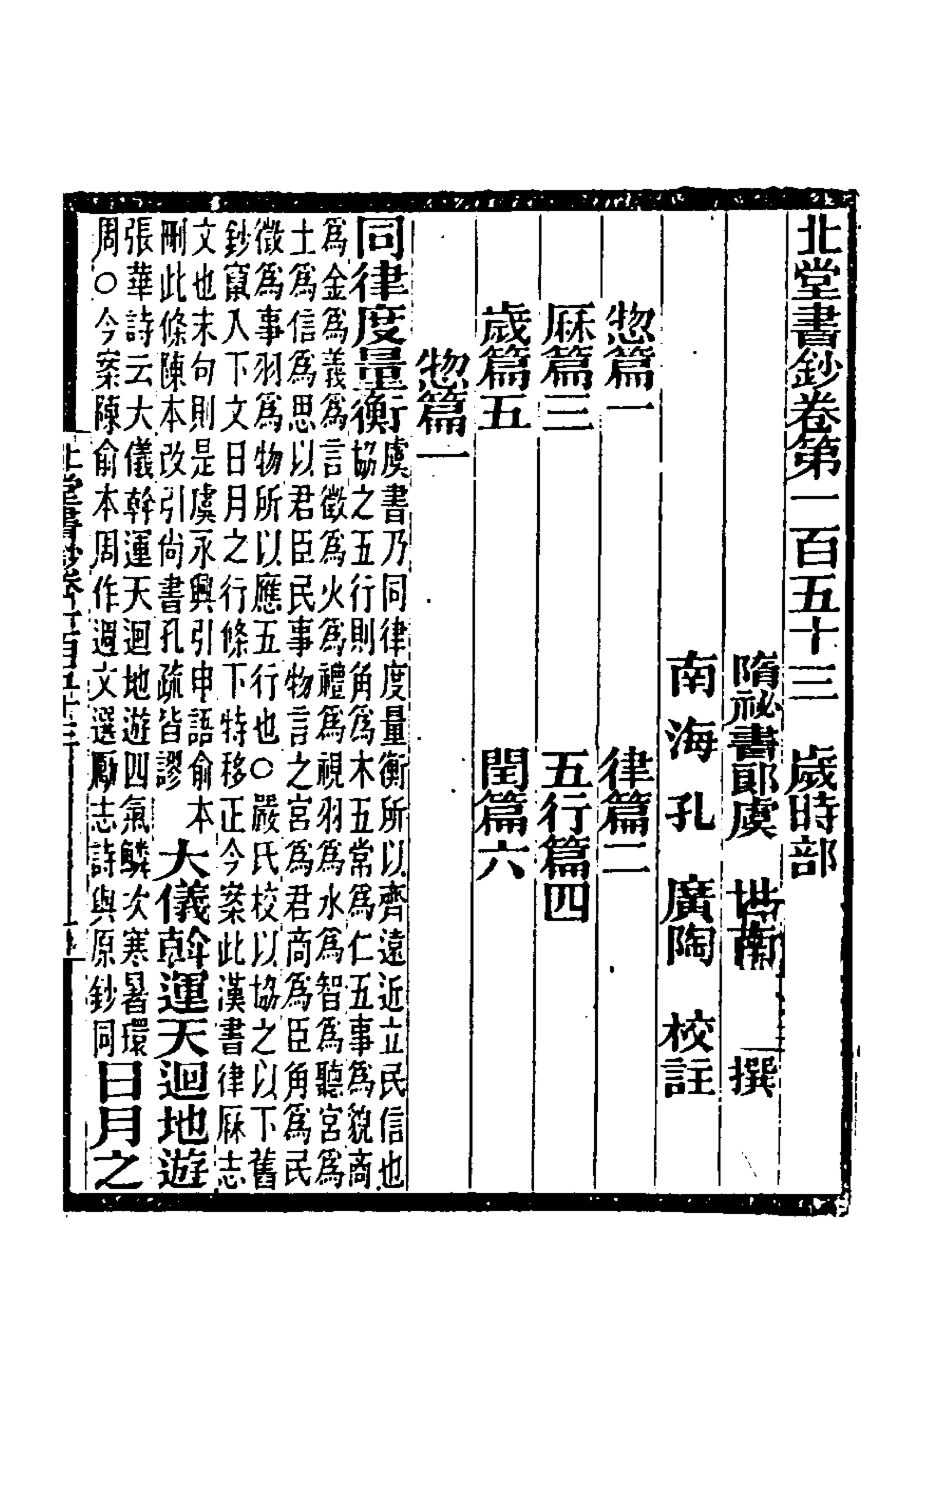 北堂書鈔卷第一百五十三　歲時部
隋祕書郎虞　世南　撰
南海孔　廣陶　校註
惣篇一　律篇二
厤篇三　五行篇四
歲篇五　閏篇六
惣篇一
同律度量衡
虞書乃同律度量衡所以齊遠近立民信也
協之五行則角爲木五常爲仁五事爲貌商
爲金爲義爲言徵爲火爲禮爲視羽爲水爲智爲聽宮爲
土爲信爲思以君臣民事物言之宮爲君商爲臣角爲民
徵爲事羽爲物所以應五行也○嚴氏校以協之以下舊
鈔竄入下文日月之行條下特移正今案此漢書律厤志
文也末句則是虞永興引申語俞本
刪此條陳本改引尚書孔疏皆謬
大儀斡運天迴地遊
張華詩云大儀斡運天迴地遊四氣鱗次寒暑環
周○今案陳俞本周作週文選勵志詩與原鈔同
日月之
北堂書鈔卷一百五十三